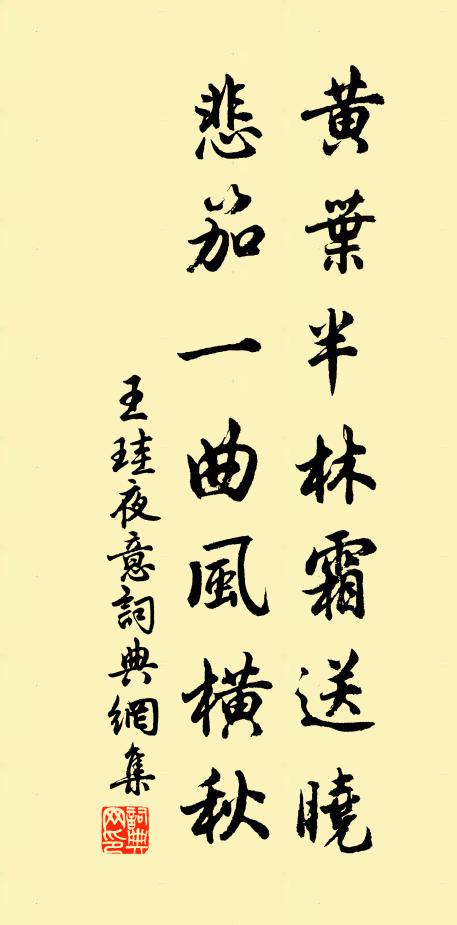 黃葉半林霜送曉
悲笳一曲風橫秋
王珪夜意詞典網集
詞典網印